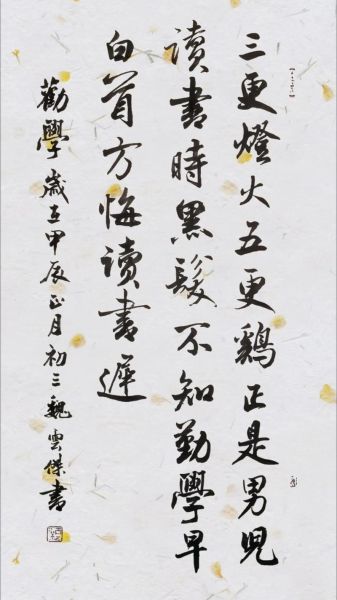 三更燈火五更鷄正是男兒
讀書時黑髮不知勤學早
白首方悔讀書遲
勸學歲在甲辰正月初三魏雲傑書